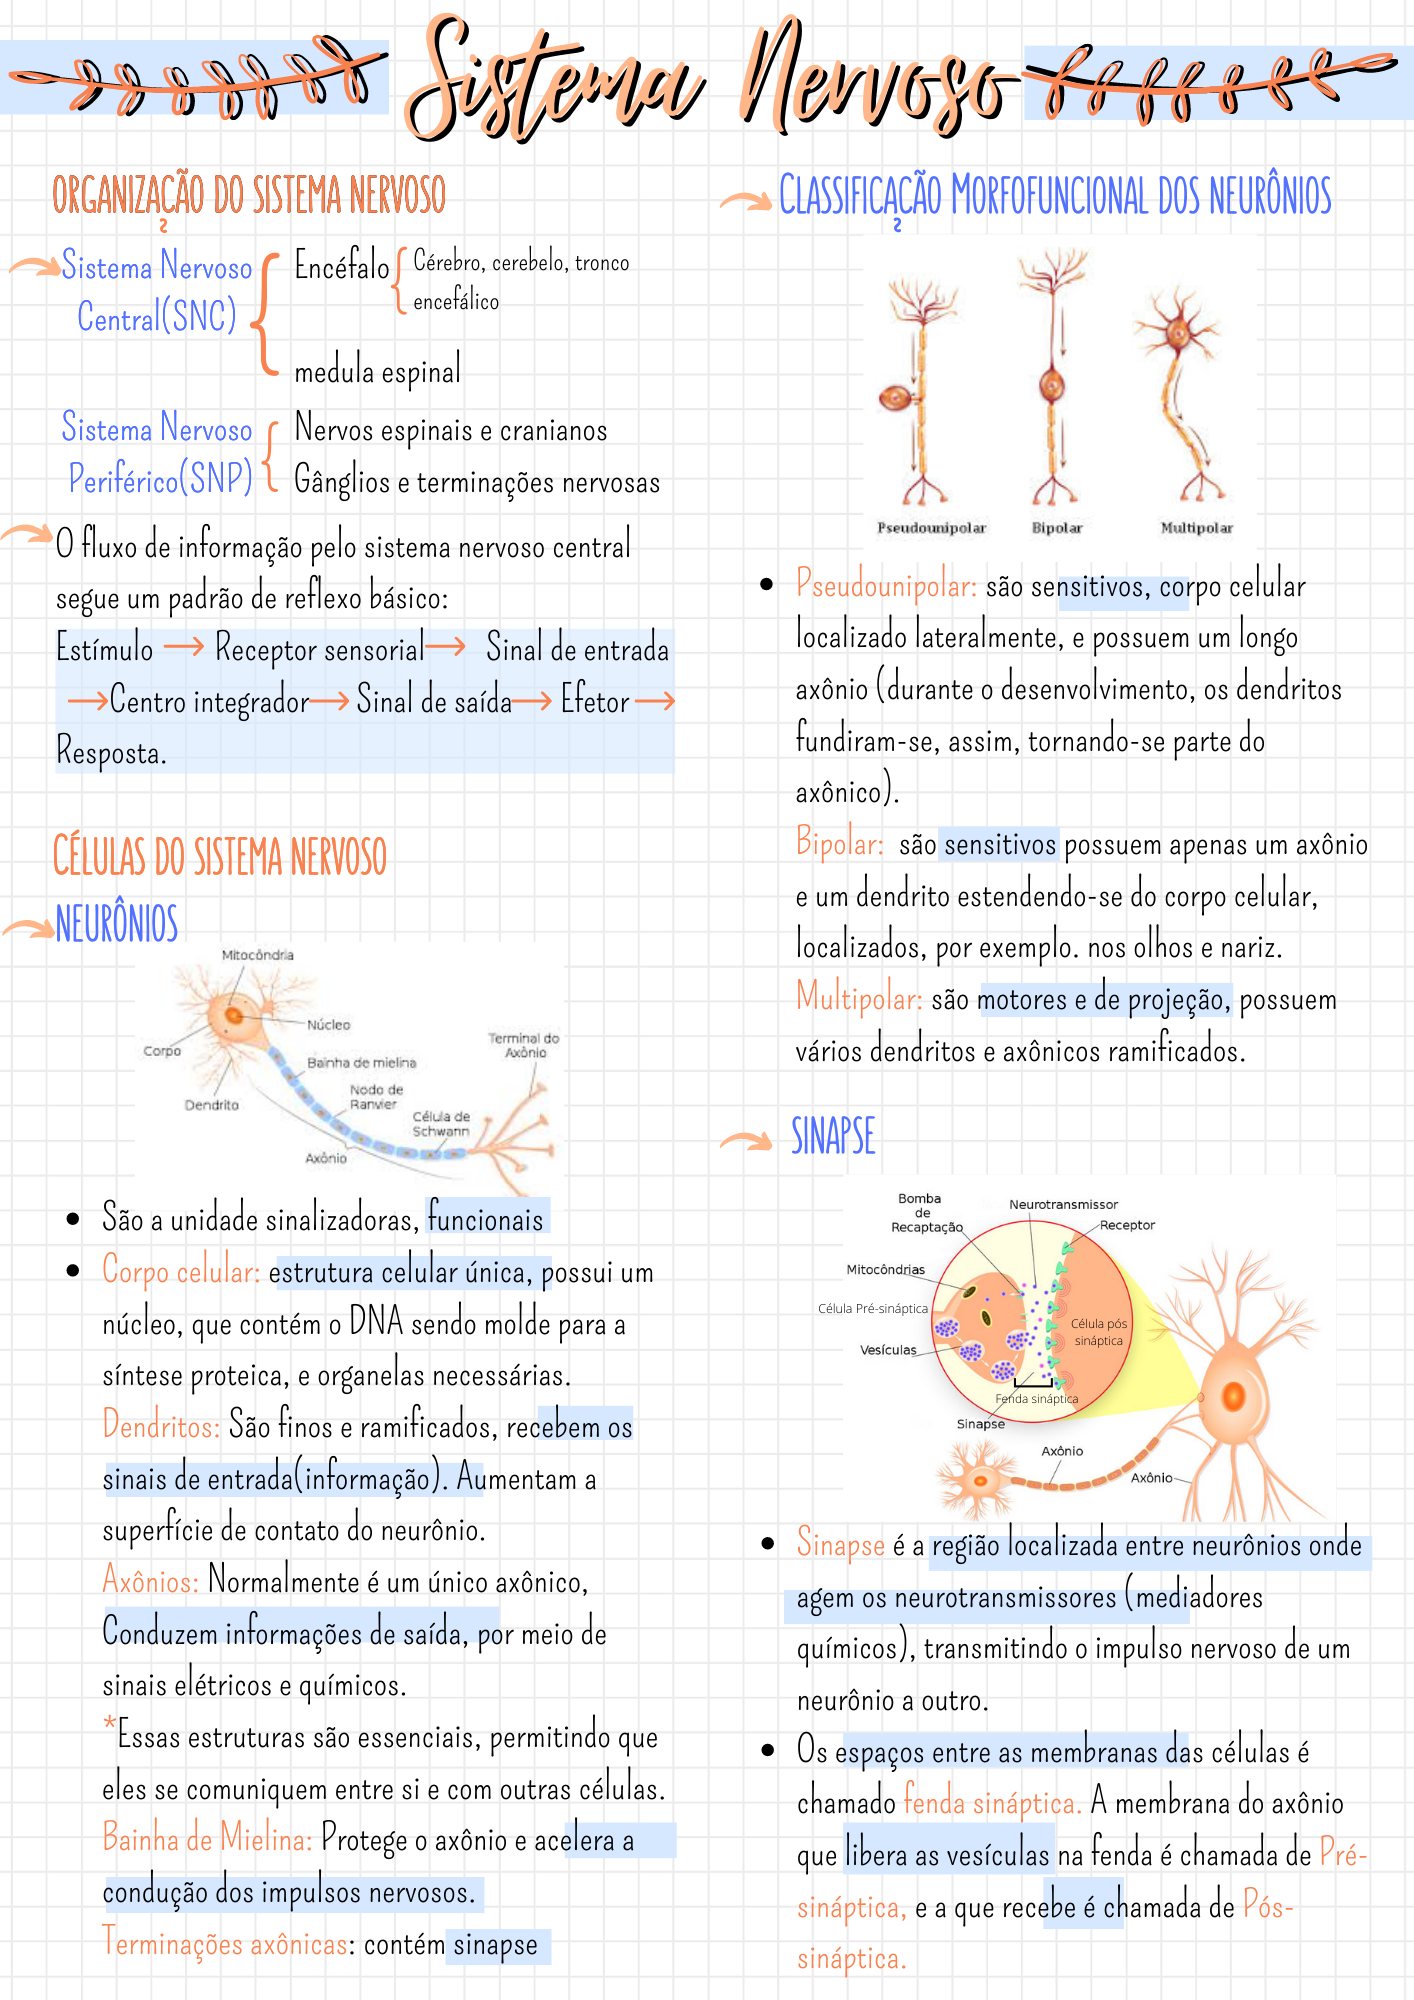 Sistema Nervoso
ORGANIZAÇÃO DO SISTEMA NERVOSO
Sistema Nervoso
Central(SNC)
Encéfalo
Cérebro, cerebelo, tronco
encefálico
medula espinal
Sistema Nervoso
Periférico(SNP)
Nervos espinais e cranianos
Gânglios e terminações nervosas
O fluxo de informação pelo sistema nervoso central
segue um padrão de reflexo básico:
Estímulo → Receptor sensorial → Sinal de entrada
→ Centro integrador → Sinal de saída → Efetor →
Resposta.
CÉLULAS DO SISTEMA NERVOSO
NEURÔNIOS
Mitocôndria
Núcleo
Corpo
Bainha de mielina
Terminal do
Axônio
Dendrito
Nodo de
Ranvier
Célula de
Schwann
Axônio
• São a unidade sinalizadoras, funcionais
• Corpo celular: estrutura celular única, possui um
núcleo, que contém o DNA sendo molde para a
síntese proteica, e organelas necessárias.
Dendritos: São finos e ramificados, recebem os
sinais de entrada(informação). Aumentam a
superfície de contato do neurônio.
Axônios: Normalmente é um único axônico,
Conduzem informações de saída, por meio de
sinais elétricos e químicos.
*Essas estruturas são essenciais, permitindo que
eles se comuniquem entre si e com outras células.
Bainha de Mielina: Protege o axônio e acelera a
condução dos impulsos nervosos.
Terminações axônicas: contém sinapse
CLASSIFICAÇÃO MORFOFUNCIONAL DOS NEURÔNIOS
Pseudounipolar
Bipolar
Multipolar
• Pseudounipolar: são sensitivos, corpo celular
localizado lateralmente, e possuem um longo
axônio (durante o desenvolvimento, os dendritos
fundiram-se, assim, tornando-se parte do
axônico).
Bipolar: são sensitivos possuem apenas um axônio
e um dendrito estendendo-se do corpo celular,
localizados, por exemplo. nos olhos e nariz.
Multipolar: são motores e de projeção, possuem
vários dendritos e axônicos ramificados.
SINAPSE
Bomba
de
Recaptação
Neurotransmissor
Receptor
Mitocôndrias
Célula Pré-sináptica
Célula pós
sináptica
Vesículas
Fenda sináptica
Sinapse
Axônio
Axônio
• Sinapse é a região localizada entre neurônios onde
agem os neurotransmissores (mediadores
químicos), transmitindo o impulso nervoso de um
neurônio a outro.
• Os espaços entre as membranas das células é
chamado fenda sináptica. A membrana do axônio
que libera as vesículas na fenda é chamada de Pré-
sináptica, e a que recebe é chamada de Pós-
sináptica.